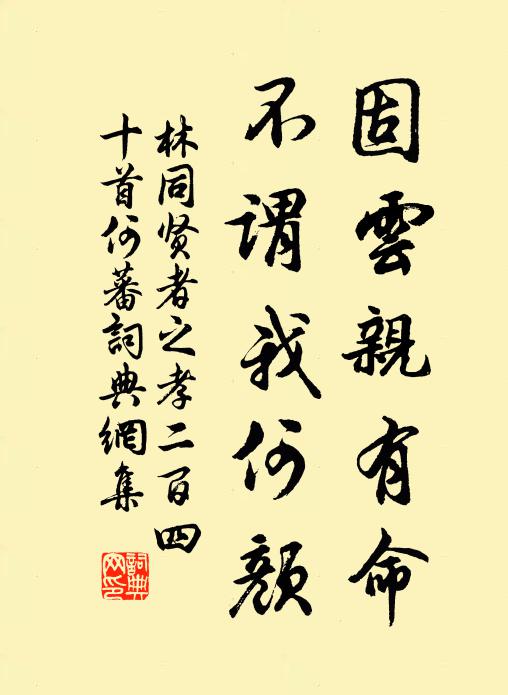 固雲親有命
不謂我何顏
林同賢者之孝二百四
十首何蕃詞典網集
詞典網印